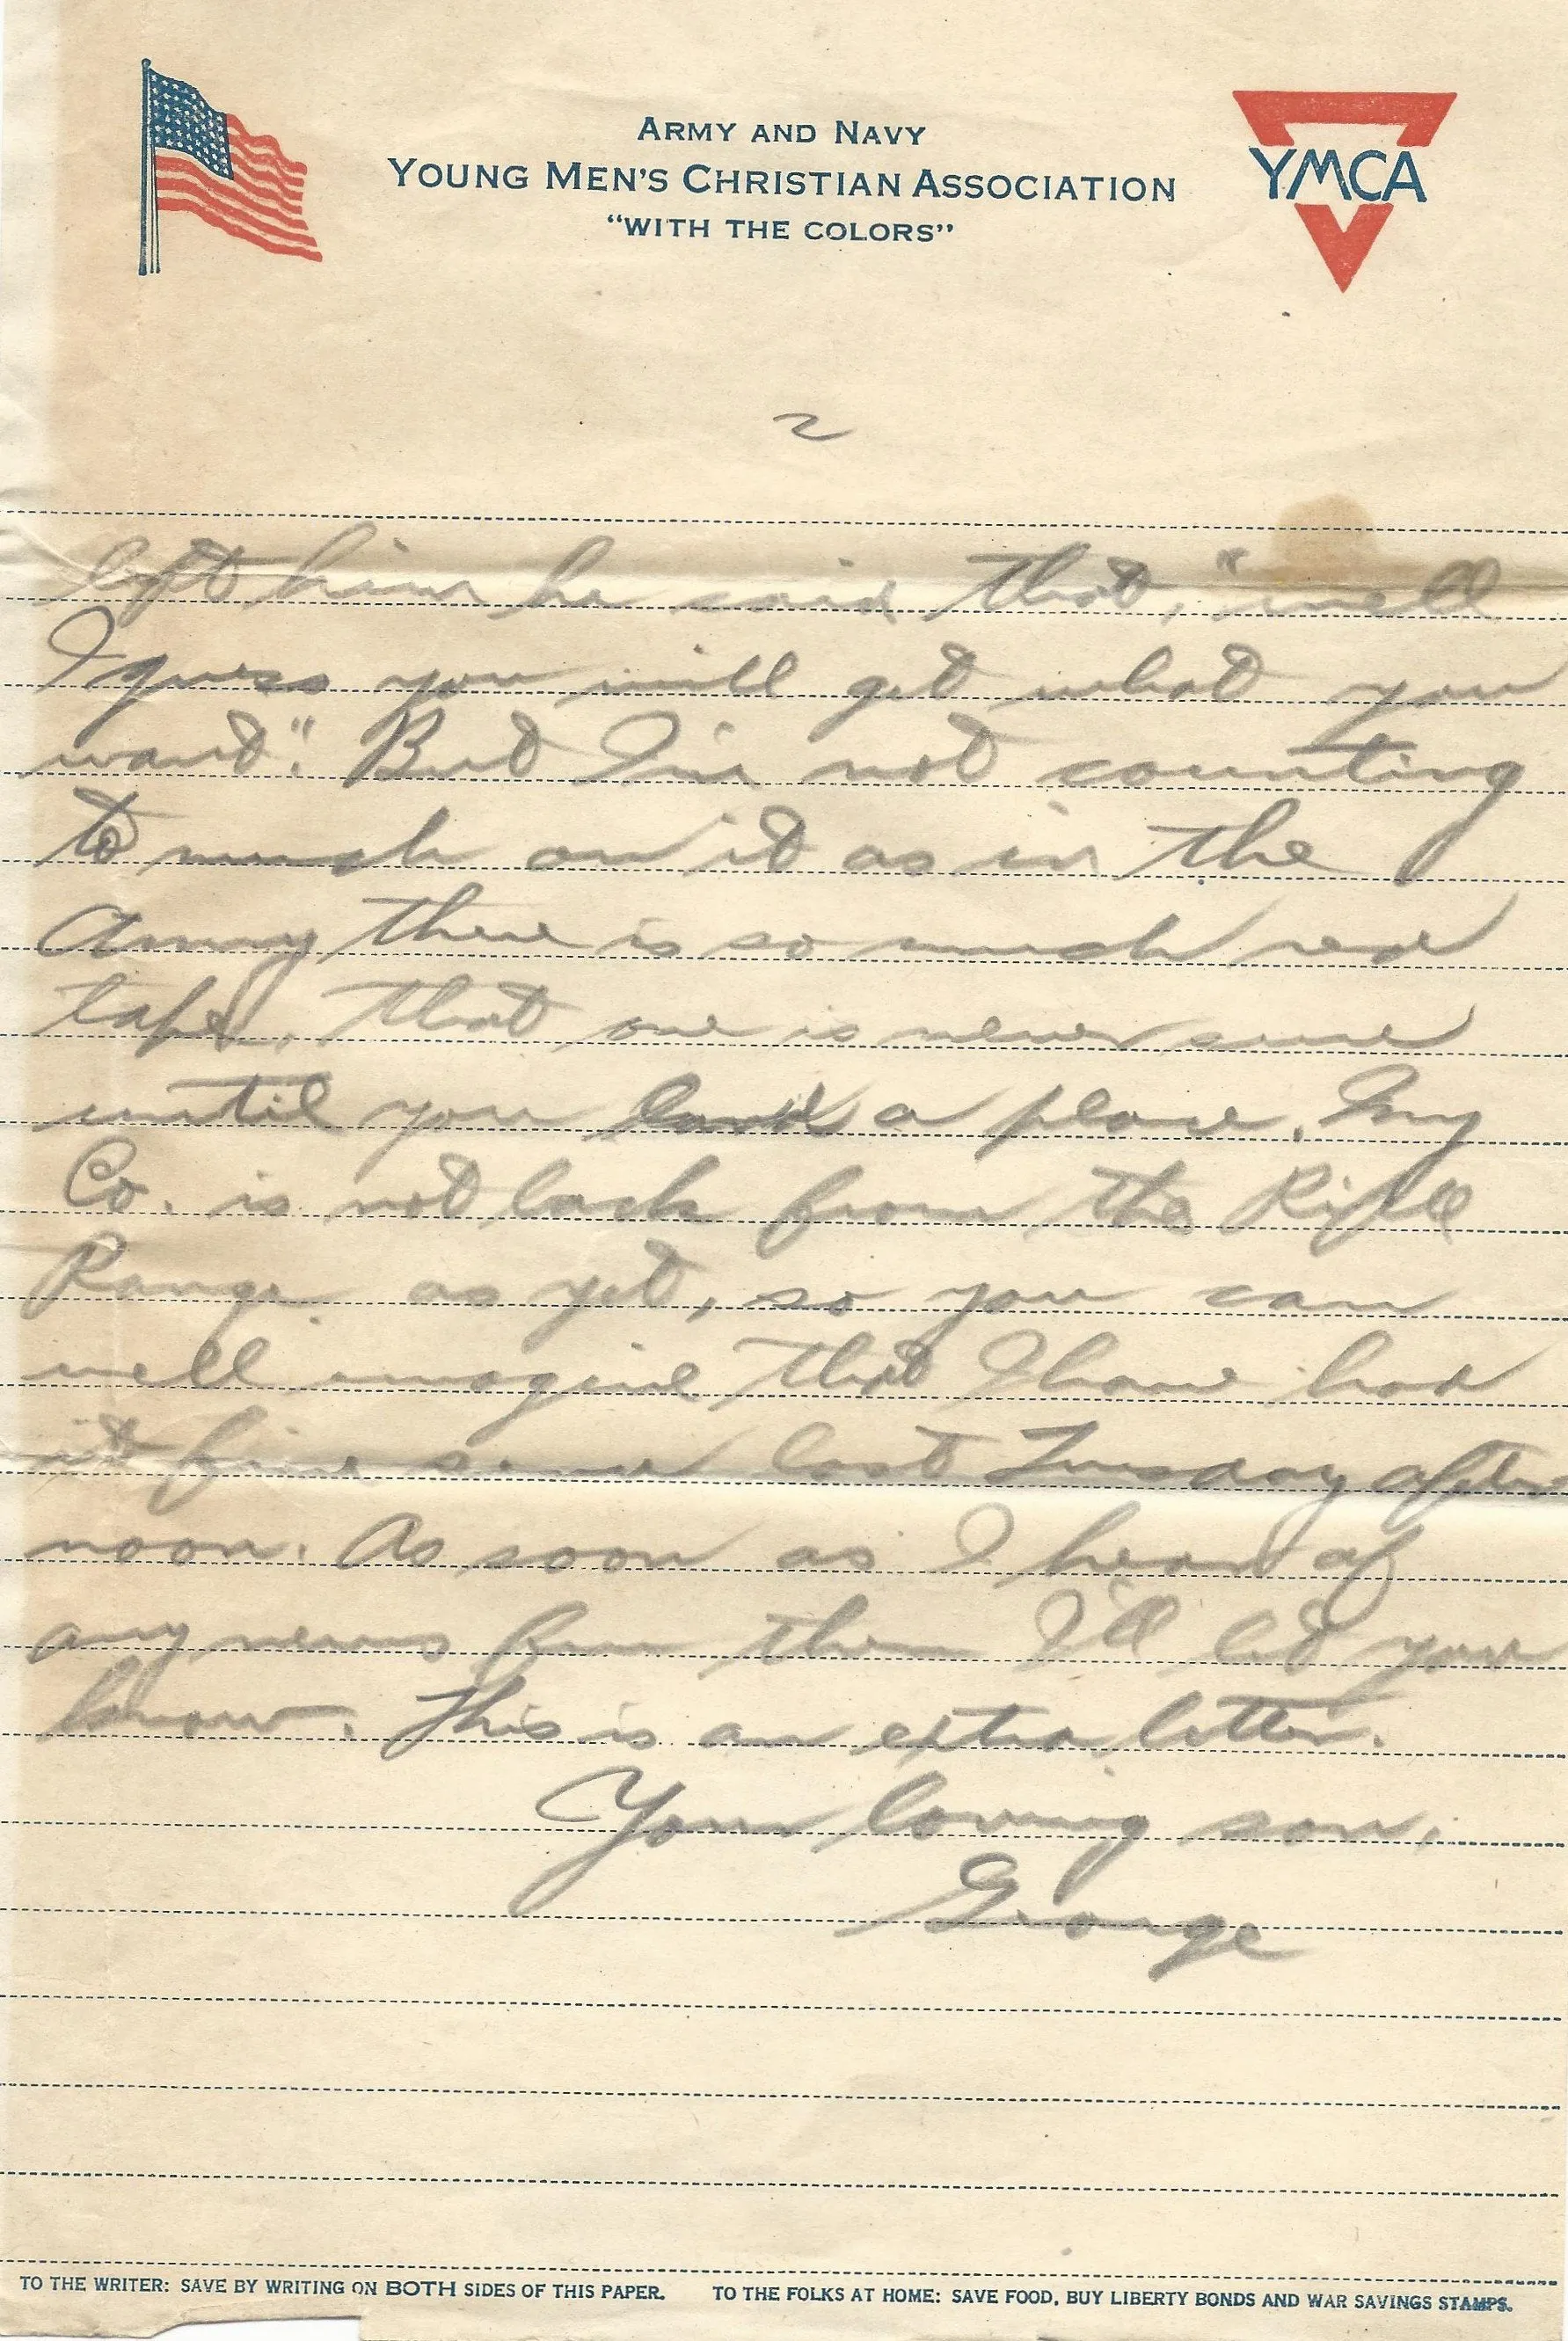 ARMY AND NAVY
YOUNG MEN'S CHRISTIAN ASSOCIATION
"WITH THE COLORS"
YMCA
2
left him he said that, "well
I guess you will get what you
want". But I'm not counting
to much on it as in the
Army there is so much red
tape, that one is never sure
until you land a place. My
Co. is not back from the Rifle
Range as yet, so you can
well imagine that I have had
it fine since last Tuesday after
noon. As soon as I hear of
any news from them I'll let you
know. This is an extra letter.
Your loving son,
George
TO THE WRITER: SAVE BY WRITING ON BOTH SIDES OF THIS PAPER. TO THE FOLKS AT HOME: SAVE FOOD, BUY LIBERTY BONDS AND WAR SAVINGS STAMPS.